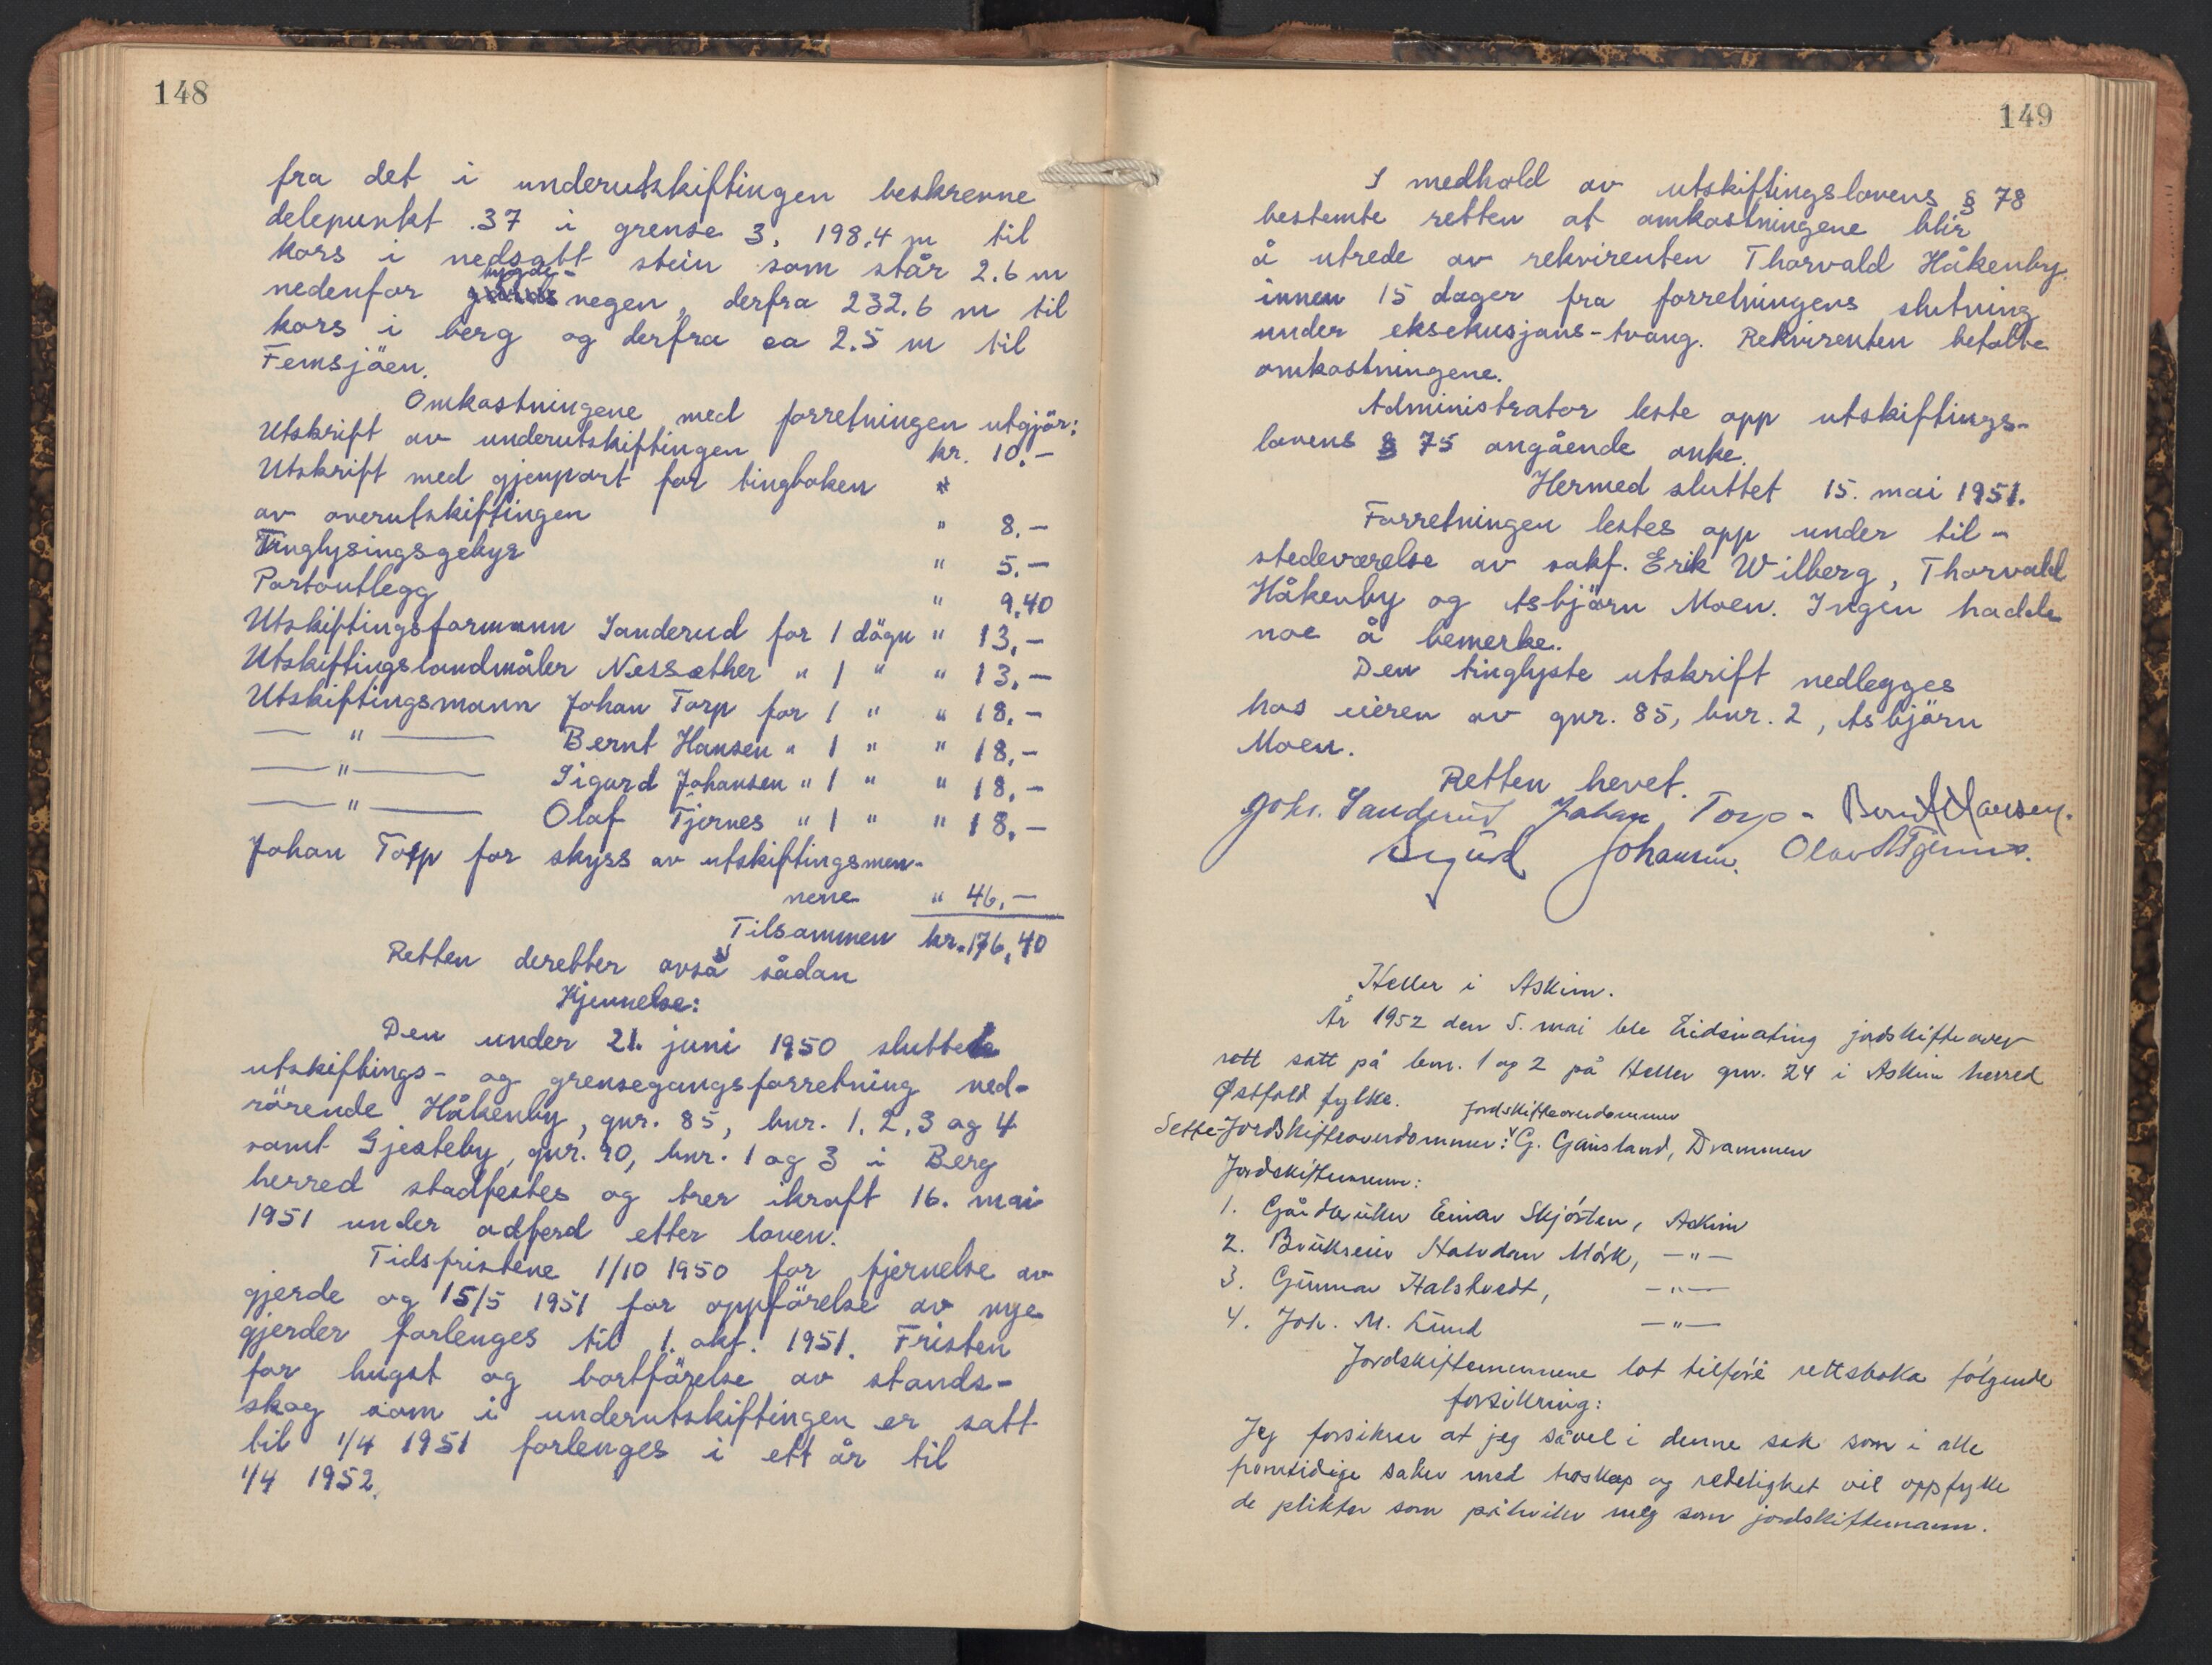 148
fra det i underutskiftingen beskrevne
delepunkt 37 i grense 3, 198,4 m til
kors i nedsatt stein som står 2.6 m
nedenfor bygde-vegen, derfra 232.6 m til
kors i berg og derfra ca 2.5 m til
Femsjöen.
Omkostningene med forretningen utgjör:
Utskrift av underutskiftingen kr. 10,-
Utskrift med gjenpart for tingboken
av overutskiftingen " 8,-
Tinglysingsgebyr " 5,-
Portoutlegg " 9,40
Utskiftingsformann Sanderud for 1 dögn " 13,-
Utskiftingslandmåler Nessæther " 1 " " 13,-
Utskiftingsmann Johan Torp for 1 " " 18,-
— " — Bernt Hansen " 1 " " 18,-
— " — Sigurd Johansen " 1 " " 18,-
— " — Olaf Tjernes " 1 " " 18,-
Johan Torp for skyss av utskiftingsmen-
nene " 46,-
Tilsammen kr. 176,40
Retten deretter avsa sådan
Kjennelse:
Den under 21. juni 1950 sluttede
utskiftings- og grensegangsforretning ved-
rörende Håkenby, gnr. 85, bnr. 1, 2, 3 og 4
samt Gjesteby, gnr. 90, bnr. 1 og 3 i Berg
herred stadfestes og trer ikraft 16. mai
1951 under adferd etter loven.
Tidsfristene 1/10 1950 for fjernelse av
gjerde og 15/5 1951 for oppförelse av nye
gjerder forlenges til 1. okt. 1951. Fristen
for hugst og bortförelse av stands-
skog som i underutskiftingen er satt
til 1/4 1951 forlenges i ett år til
1/4 1952.
149
I medhold av utskiftingslovens § 78
bestemte retten at omkostningene blir
å utrede av rekvirenten Thorvald Håkenby
innen 15 dager fra forretningens slutning
under eksekusjons-tvang. Rekvirenten betalte
omkostningene.
Administrator leste opp utskiftings-
lovens § 75 angående anke.
Hermed sluttet 15. mai 1951.
Forretningen lestes opp under til-
stedeværelse av sakf. Erik Wilberg, Thorvald
Håkenby og Asbjörn Moen. Ingen hadde
noe å bemerke.
Den tinglyste utskrift nedlegges
hos eieren av gnr. 85, bnr. 2, Asbjörn
Moen.
Retten hevet.
Johs. Sanderud Johan Torp - Bernt Hansen.
Sigurd Johansen. Olav A Tjernes.
Heller i Askim.
År 1952 den 5. mai ble Eidsivating jordskifteover-
rett satt på bnr. 1 og 2 på Heller gnr. 24 i Askim herred
Østfold fylke.
jordskifteoverdommer
Sette-Jordskifteoverdommer: G. Gausland, Drammen
Jordskiftemenn:
1. Gårdbruker Einar Skjósten, Askim
2. Brukseier Halvdan Mörk, — " —
3. Gunnar Halstvedt, — " —
4. Joh. M. Lund — " —
Jordskiftemennene lot tilføre rettsboka følgende
forsikring:
Jeg forsikrer at jeg såvel i denne sak som i alle
framtidige saker med troskap og redelighet vil oppfylle
de plikter som påhviler meg som jordskiftemann.